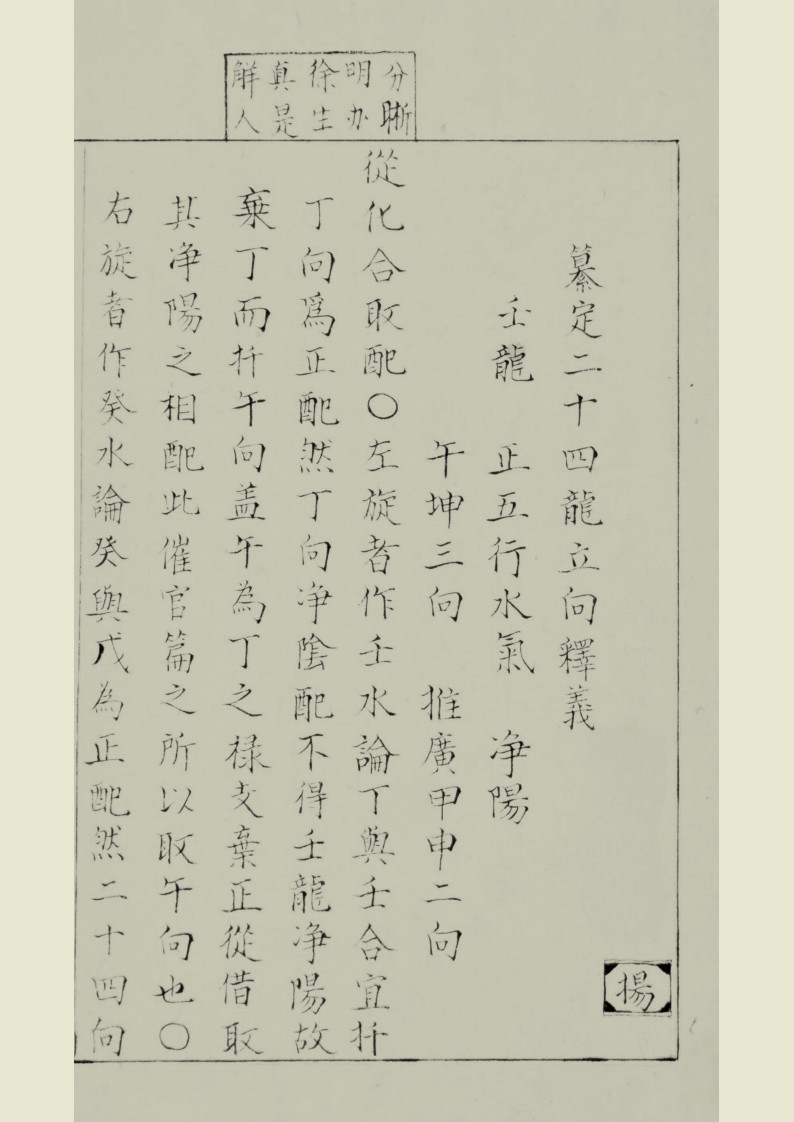 分晰
明办
徐生
真是
解人
纂定二十四龍立向釋義
壬龍 正五行水氣 净陽
午坤三向 推廣甲申二向
從化合取配〇左旋者作壬水論丁與壬合宜扦
丁向爲正配然丁向净陰配不得壬龍净陽故
棄丁而扦午向盖午為丁之禄支棄正從借取
其净陽之相配此催官篇之所以取午向也〇
右旋者作癸水論癸與戊為正配然二十四向
揚